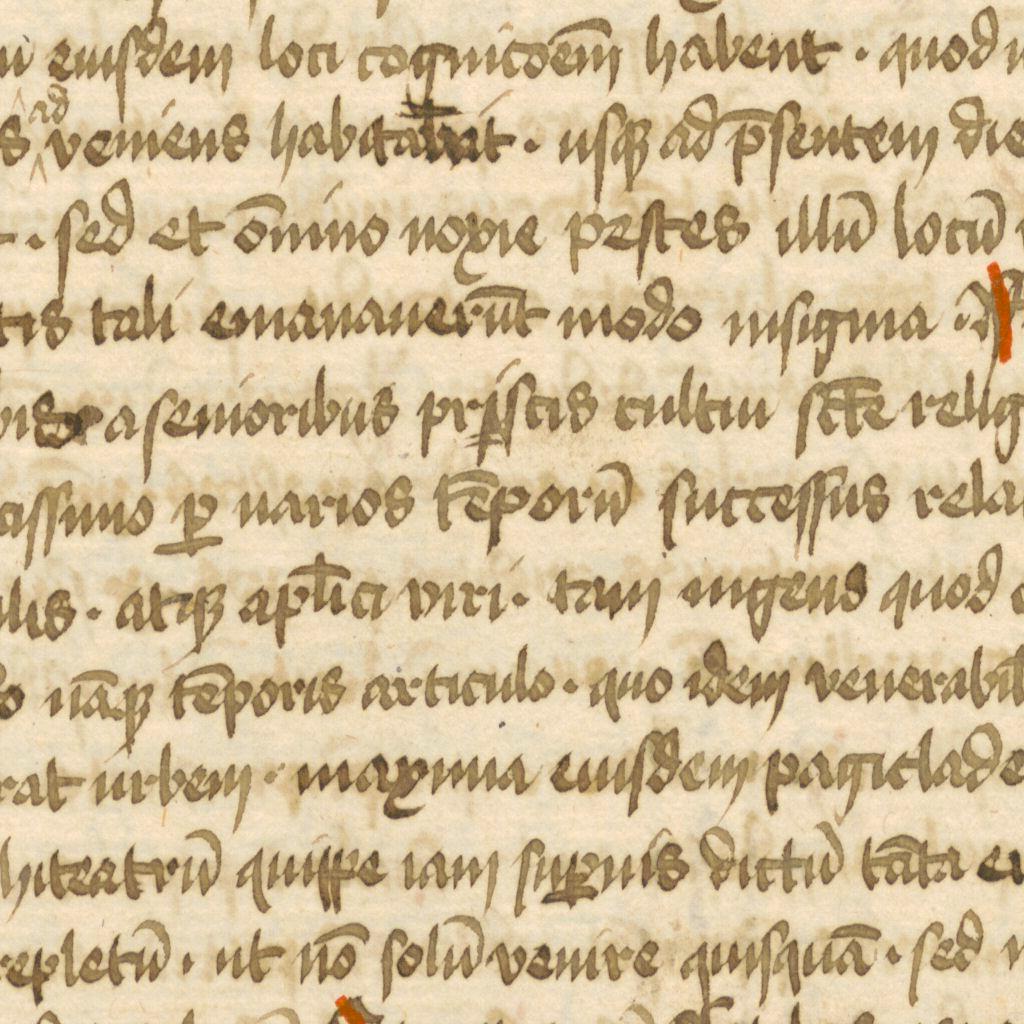 eiusdem loci cognicōem̄ habent · quod
ad
veniens habitavit · usq̢ ad p̄sentem die
· sed et ōmino noxie pestes illū locū
tis tali emanauerūt modo insignia ·
a senioribus priscis cultui sct̄e relig
cissimo ꝑ varios tēporū successus rela
ilis · atq̢ apl̄ici viri · tam ingens quod
nāq̢ tēporis articulo · quo idem venerabil
rat urbem · maxima eiusdem pagi clade
hiteatrū quippe iam suꝑius dictū tāta
repletū · ut nō solū venire quisquā · sed